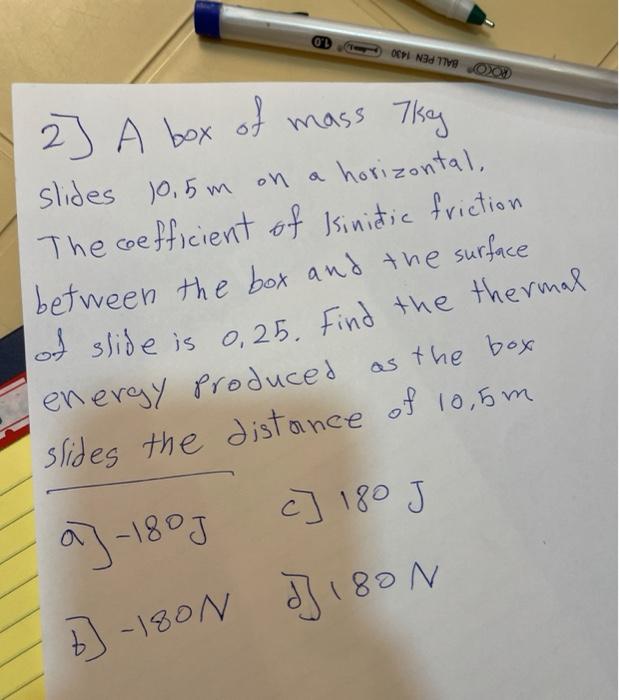 ROCO BALL PEN 1430 1.0
2] A box of mass 7kg
slides 10,5 m on a horizontal.
The coefficient of kinitic friction
between the box and the surface
of slide is 0,25. Find the thermal
energy produced as the box
slides the distance of 10,5 m
a] -180 J c] 180 J
b] -180 N d] 180 N